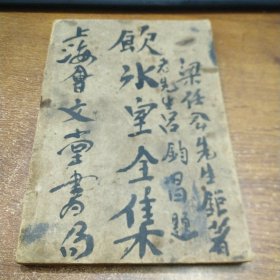 梁任公先生鉅著
老先生呂鈞昌題
飲冰室全集
上海會文堂書局